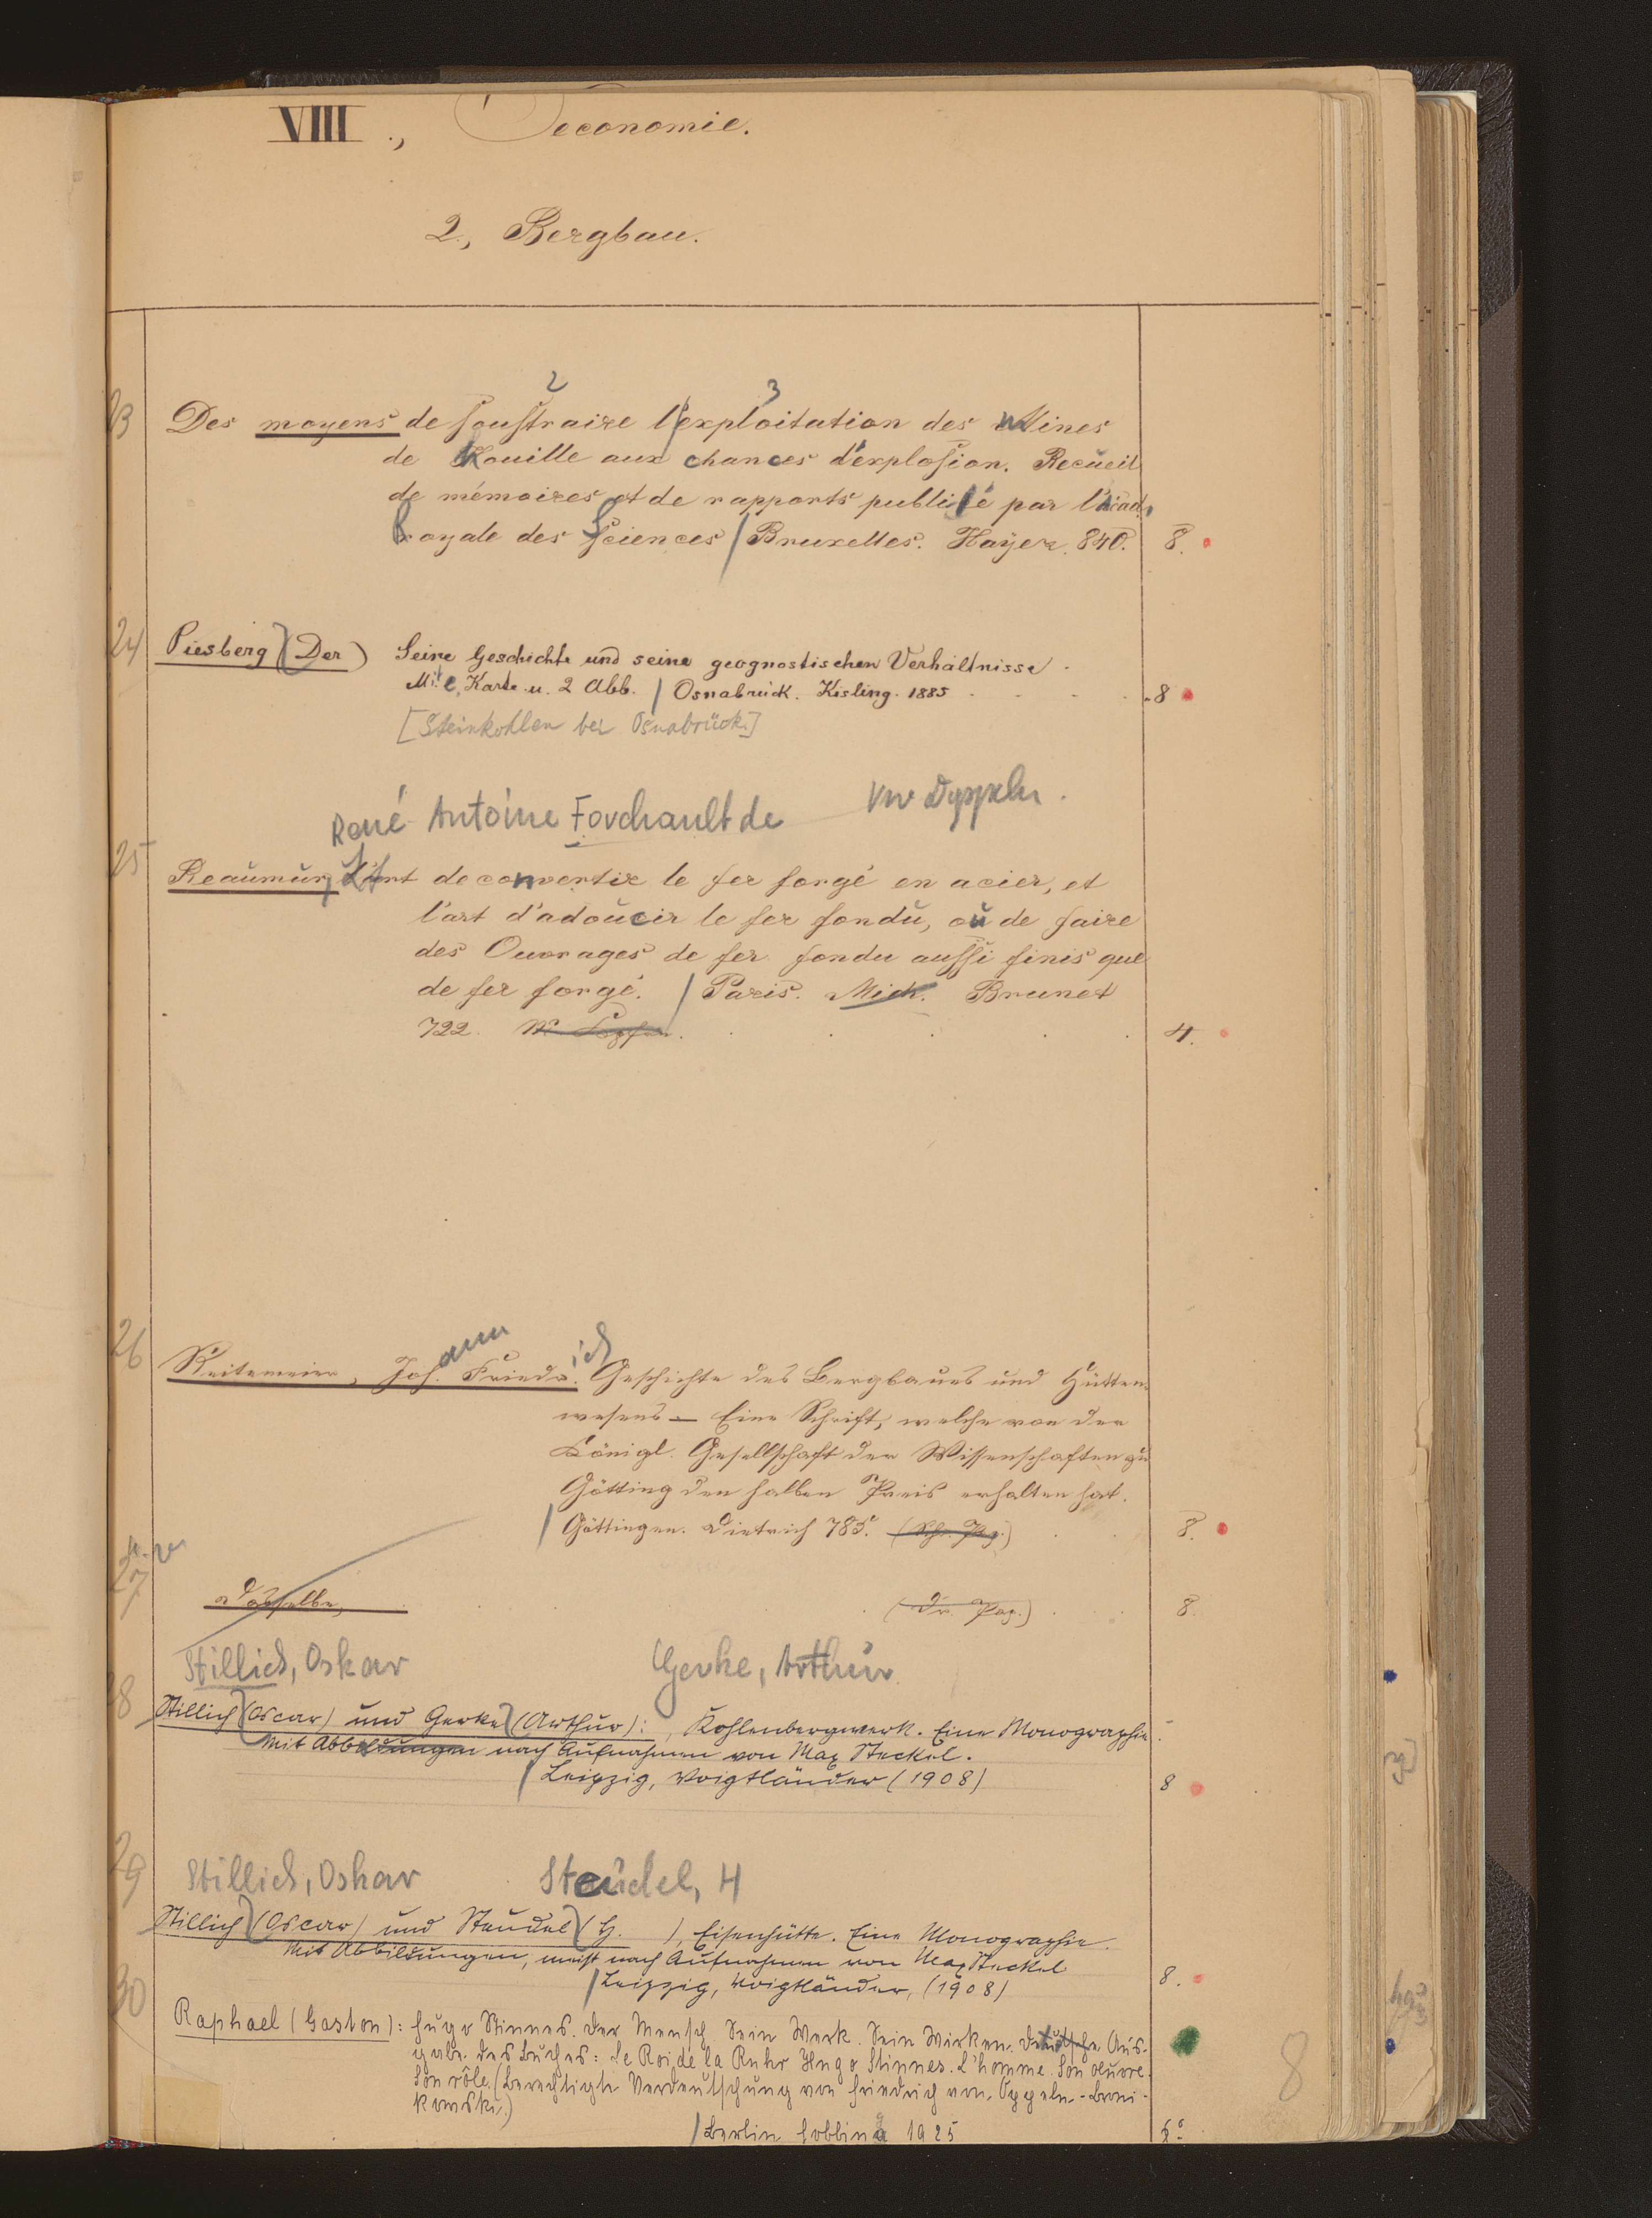 VIII., Oeconomie.
2., Bergbau.
2 3
23 Des moyens de soustraire l'exploitation des Mines
de houille aux chances d'explosion. Recueil
de mémoires et de rapports publié par l'Acad.
royale des Sciences / Bruxelles. Hayez. 840. 8.
24 Piesberg (Der) Seine Geschichte und seine geognostischen Verhältnisse.
Mit e. Karte u. 2 Abb. / Osnabrück. Kisling. 1885 8
[Steinkohlen bei Osnabrück.]
René Antoine Ferchault de
25 Reaumur, L'Art de convertir le fer forgé en acier, et
l'art d'adoucir le fer fondu, ou de faire
des Ouvrages de fer fondu aussi finis que
de fer forgé. / Paris. Mich. Brunet
722. 4.
ann ich
26 Reitemeier, Joh. Friedr. Geschichte des Bergbaues und Hütten-
wesens – Eine Schrift, welche von der
Königl. Gesellschaft der Wissenschaften zu
Götting den halben Preis erhalten hat.
/ Göttingen. Dietrich 785. (Schr. Pap.) 8.
27 Dasselbe, (Dr. Pap.) 8.
Stillich, Oskar Gerke, Arthur
28 Stillich (Oscar) und Gerke (Arthur): Kohlenbergwerk. Eine Monographie.
Mit Abbildungen nach Aufnahmen von Max Steckel.
/ Leipzig, Voigtländer (1908) 8
Stillich, Oskar Steudel, H
29 Stillich (Oscar) und Steudel (H. ), Eisenhütte. Eine Monographie.
Mit Abbildungen, meist nach Aufnahmen von Max Steckel
/ Leipzig, Voigtländer, (1908) 8.
30 Raphael (Gaston): Hugo Stinnes. Der Mensch. Sein Werk. Sein Wirken. Deutsche Aus-
gabe des Buches: Le Roi de la Ruhr Hugo Stinnes. L'homme. Son oeuvre.
Son rôle. (Berechtigte Verdeutschung von Friedrich von Oppeln-Broni-
kowski.)
/ Berlin Hobbing 1925 8°
8